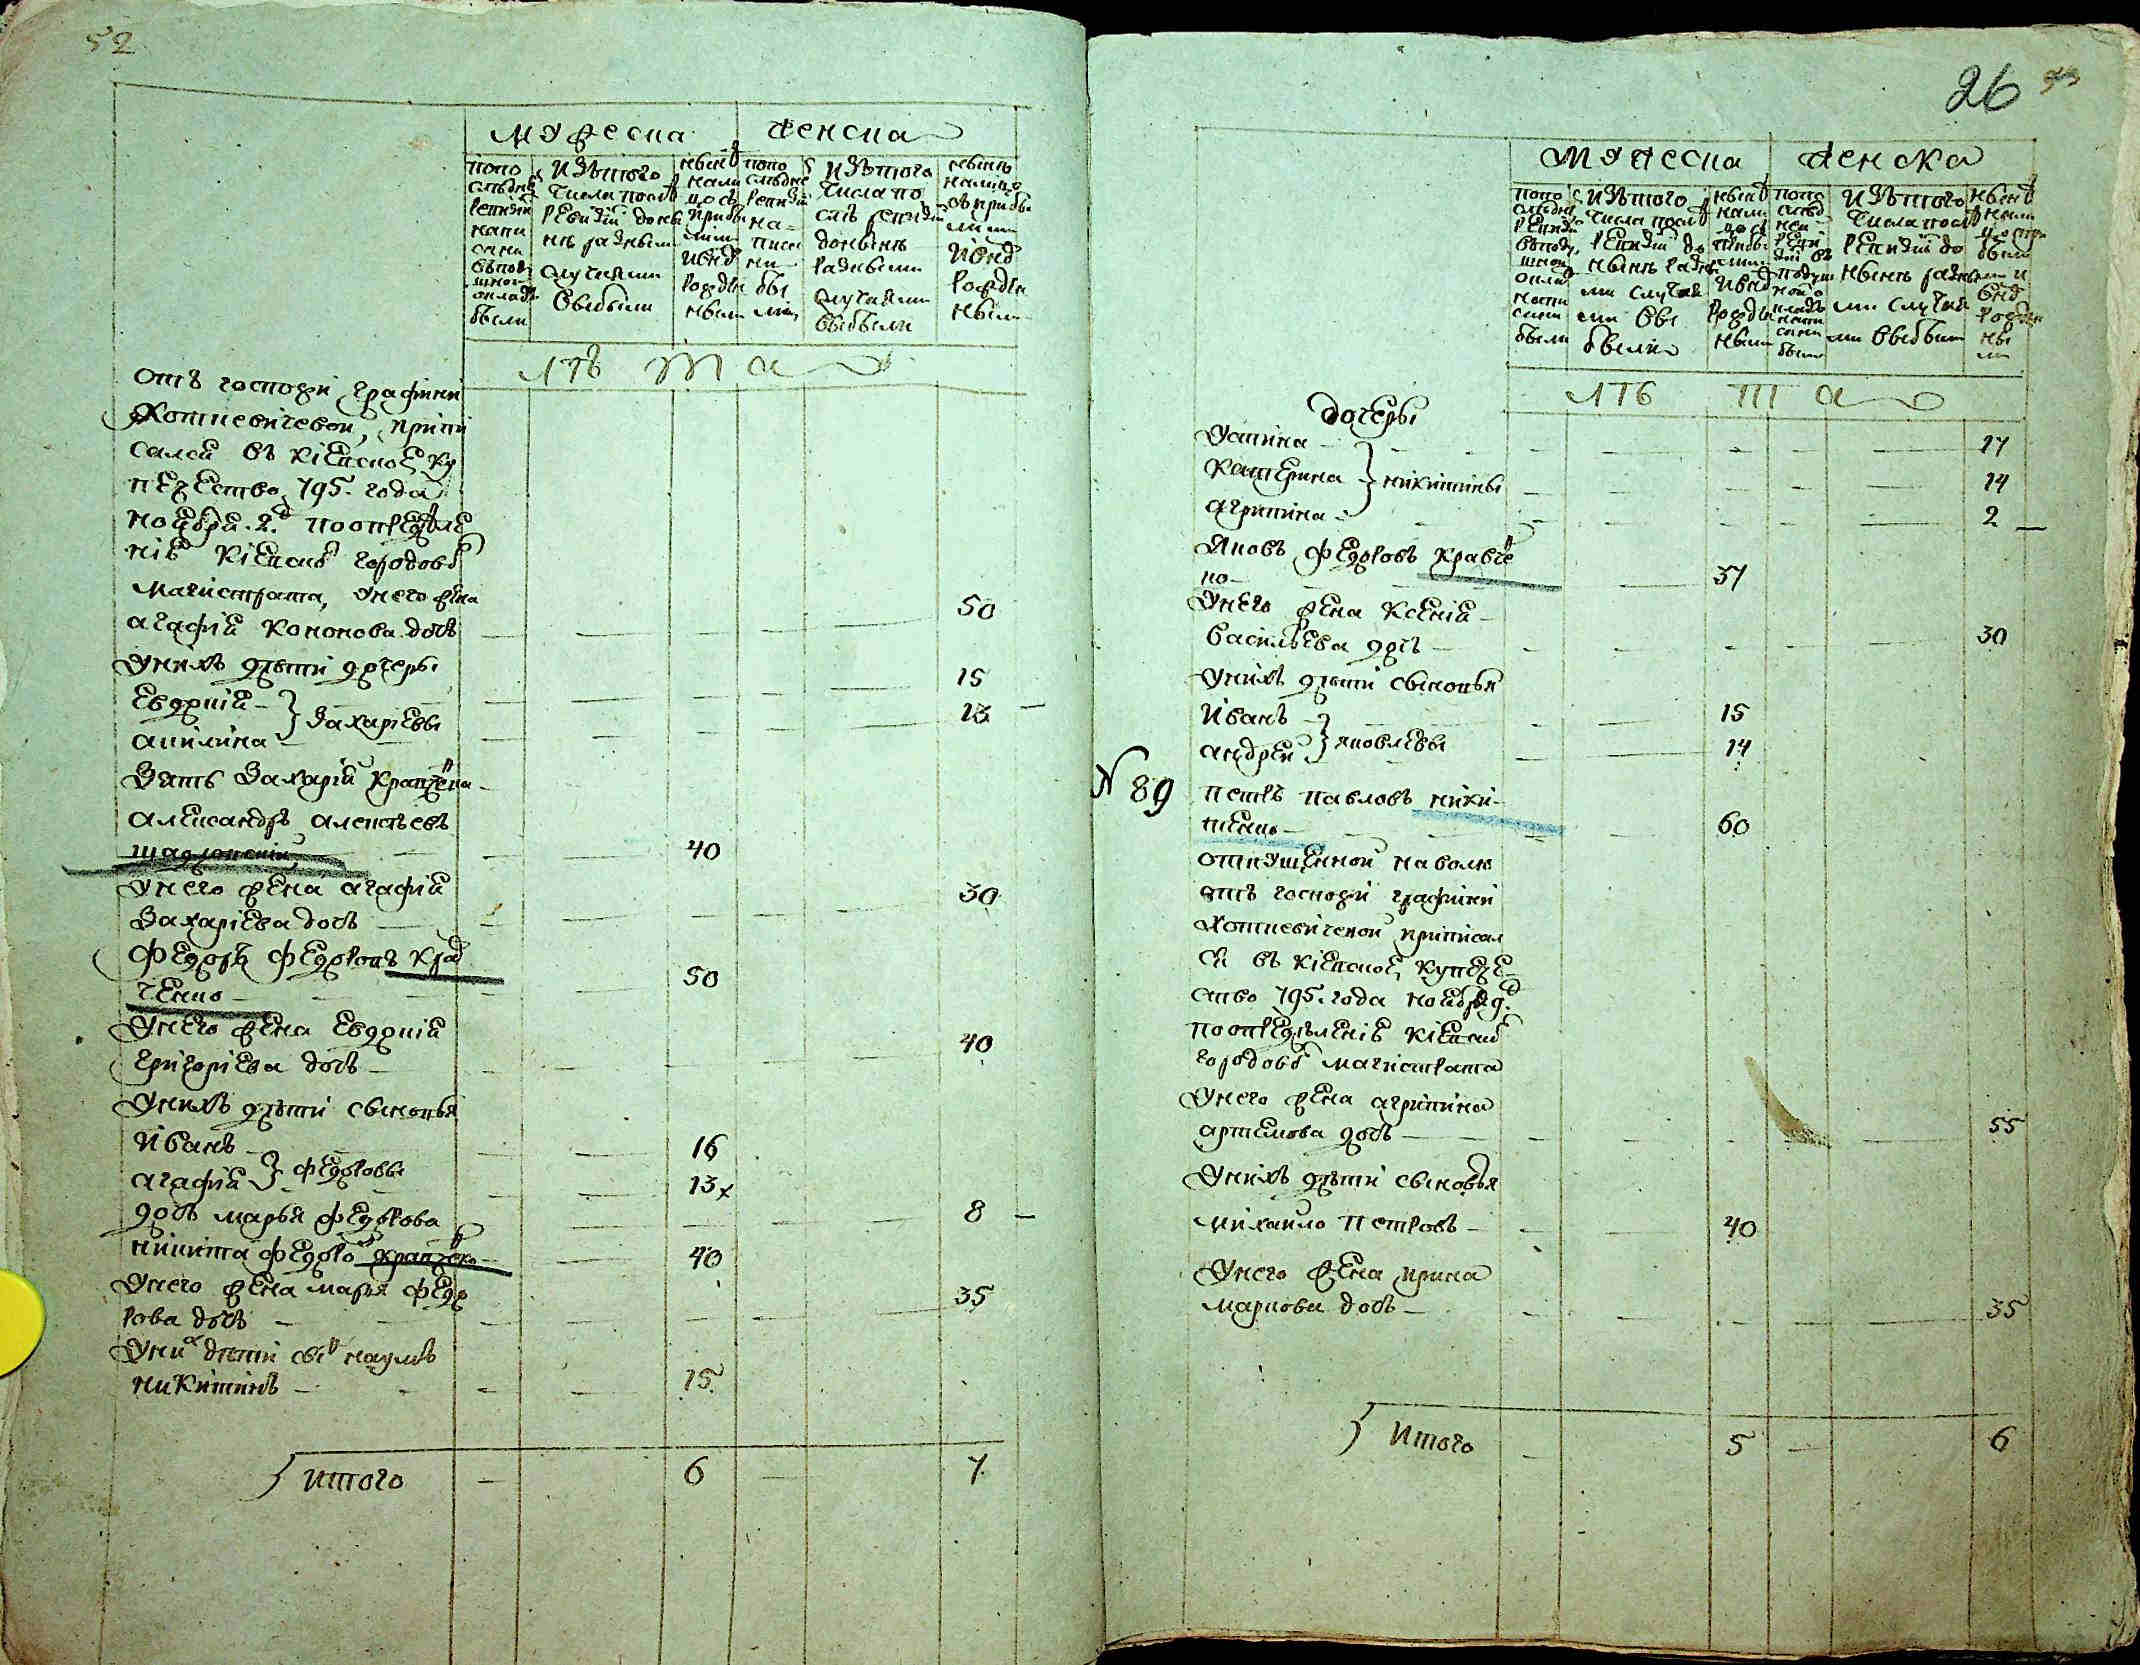 52
мужеска женска
попо слѣдней ревизіи напи санн въподу шной окладъ были
изъ того числа послѣ ревизіи доны нѣ разными случаями выбыли
нынѣ нали цо съ прибы лыми ивнов рожде нными
попо слѣдней ревизіи на писа ны были
изъ того числа по слѣ ревизіи донынѣ разными случаями выбыли
нынѣ налицо съ прибы лыми ивнов рожде ными
лѣта
отъ госпожи графини
Хоткевичевой, припи
салсй въ кіевское ку
печество 795. года
ноября 2.д поопредѣле
нію кіевскаго городово
магистрата, унего жена
агафия кононова дочь 50
унихъ дѣти дочеры
Евдокия 15
акилина } Захаріевы 13
Зять Захарія кравченка
александръ алексѣевъ
шадловскій 40
унего жена агафия
Захаріева дочь 30
Федоръ Федоровъ крав
ченко 50
унего жена Евдокия
григоріева дочь 40
унихъ дѣти сыновья
Иванъ 16
агафий } Федоровы 13
дочь марья Федорова 8
никита Федоровъ кравченко 40
унего жена марья Федо
рова дочь 35
унихъ дѣти сынъ наумъ
никитинъ 15
итого 6 7
26
мужеска женска
попо слѣдней ревизіи въподу шной окладъ напи саны были
изъ того числа послѣ ревизіи до нынѣ разны ми случая ми вы были
нынѣ нали цо съ прибы лыми ивнов рожде ными
попо слѣд ней реви зіи въ подуш ной окладъ напи саны были
изъ того числа послѣ ревизіи до нынѣ разны ми случая ми выбыли
нынѣ нали цо при былы ми и внов рожде ны ми
лѣта
дочеры
устина 17
катерина } никитины 14
агрипина 2
Яковъ Федоровъ кравче
нко 37
унего жена ксения
васильева дочь 30
унихъ дѣти сыновья
иванъ 15
андрей } яковлевы 14
N 89 петръ павловъ ники
тенко 60
отпущенной наволю
отъ госпожи графини
Хоткевичевой приписал
ся въ кіевское купече
ство 795. года ноября 9.д
поопредѣленію кіевскаго
городово магистрата
унего жена агрипина
артемова дочь 55
унихъ дѣти сыновья
михайло петровъ 40
унего жена ирина
маркова дочь 35
итого 5 6